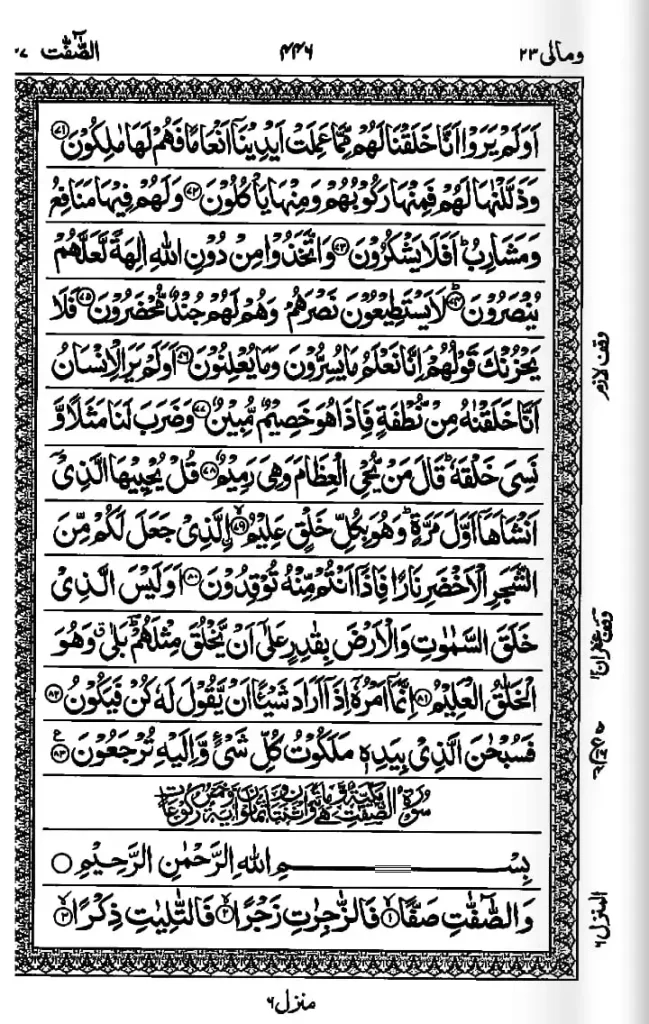 ومالی ٢٣ ۴۴۶ الصّٰٓفّٰت ٣٧
اَوَلَمْ يَرَوْا اَنَّا خَلَقْنَا لَهُمْ مِّمَّا عَمِلَتْ اَيْدِيْنَاۤ اَنْعَامًا فَهُمْ لَهَا مٰلِكُوْنَ ﴿٧١﴾
وَذَلَّلْنٰهَا لَهُمْ فَمِنْهَا رَكُوْبُهُمْ وَمِنْهَا يَاْكُلُوْنَ ﴿٧٢﴾ وَلَهُمْ فِيْهَا مَنَافِعُ
وَمَشَارِبُ ؕ اَفَلَا يَشْكُرُوْنَ ﴿٧٣﴾ وَاتَّخَذُوْا مِنْ دُوْنِ اللّٰهِ اٰلِهَةً لَّعَلَّهُمْ
يُنْصَرُوْنَ ؕ﴿٧٤﴾ لَا يَسْتَطِيْعُوْنَ نَصْرَهُمْ ۙ وَهُمْ لَهُمْ جُنْدٌ مُّحْضَرُوْنَ ﴿٧٥﴾ فَلَا
يَحْزُنْكَ قَوْلُهُمْ ۘ اِنَّا نَعْلَمُ مَا يُسِرُّوْنَ وَمَا يُعْلِنُوْنَ ﴿٧٦﴾ اَوَلَمْ يَرَ الْاِنْسَانُ
وقف لازم
اَنَّا خَلَقْنٰهُ مِنْ نُّطْفَةٍ فَاِذَا هُوَ خَصِيْمٌ مُّبِيْنٌ ﴿٧٧﴾ وَضَرَبَ لَنَا مَثَلًا وَّ
نَسِىَ خَلْقَهٗ ؕ قَالَ مَنْ يُّحْىِ الْعِظَامَ وَهِىَ رَمِيْمٌ ﴿٧٨﴾ قُلْ يُحْيِيْهَا الَّذِىْۤ
اَنْشَاَهَاۤ اَوَّلَ مَرَّةٍ ؕ وَهُوَ بِكُلِّ خَلْقٍ عَلِيْمُ ۙ﴿٧٩﴾ اۨلَّذِىْ جَعَلَ لَكُمْ مِّنَ
الشَّجَرِ الْاَخْضَرِ نَارًا فَاِذَاۤ اَنْتُمْ مِّنْهُ تُوْقِدُوْنَ ﴿٨٠﴾ اَوَلَيْسَ الَّذِىْ
خَلَقَ السَّمٰوٰتِ وَالْاَرْضَ بِقٰدِرٍ عَلٰٓى اَنْ يَّخْلُقَ مِثْلَهُمْ ؔؕ بَلٰى ۗ وَهُوَ
وقف غفران
الْخَلّٰقُ الْعَلِيْمُ ﴿٨١﴾ اِنَّمَاۤ اَمْرُهٗۤ اِذَاۤ اَرَادَ شَيْـًٔا اَنْ يَّقُوْلَ لَهٗ كُنْ فَيَكُوْنُ ﴿٨٢﴾
فَسُبْحٰنَ الَّذِىْ بِيَدِهٖ مَلَكُوْتُ كُلِّ شَىْءٍ وَّاِلَيْهِ تُرْجَعُوْنَ ﴿٨٣﴾
سُوْرَةُ الصّٰٓفّٰتِ مَكِّيَّةٌ
بِسْمِ اللّٰهِ الرَّحْمٰنِ الرَّحِيْمِ
وَالصّٰٓفّٰتِ صَفًّا ۙ﴿١﴾ فَالزّٰجِرٰتِ زَجْرًا ۙ﴿٢﴾ فَالتّٰلِيٰتِ ذِكْرًا ۙ﴿٣﴾
المنزل ٦
منزل ٦